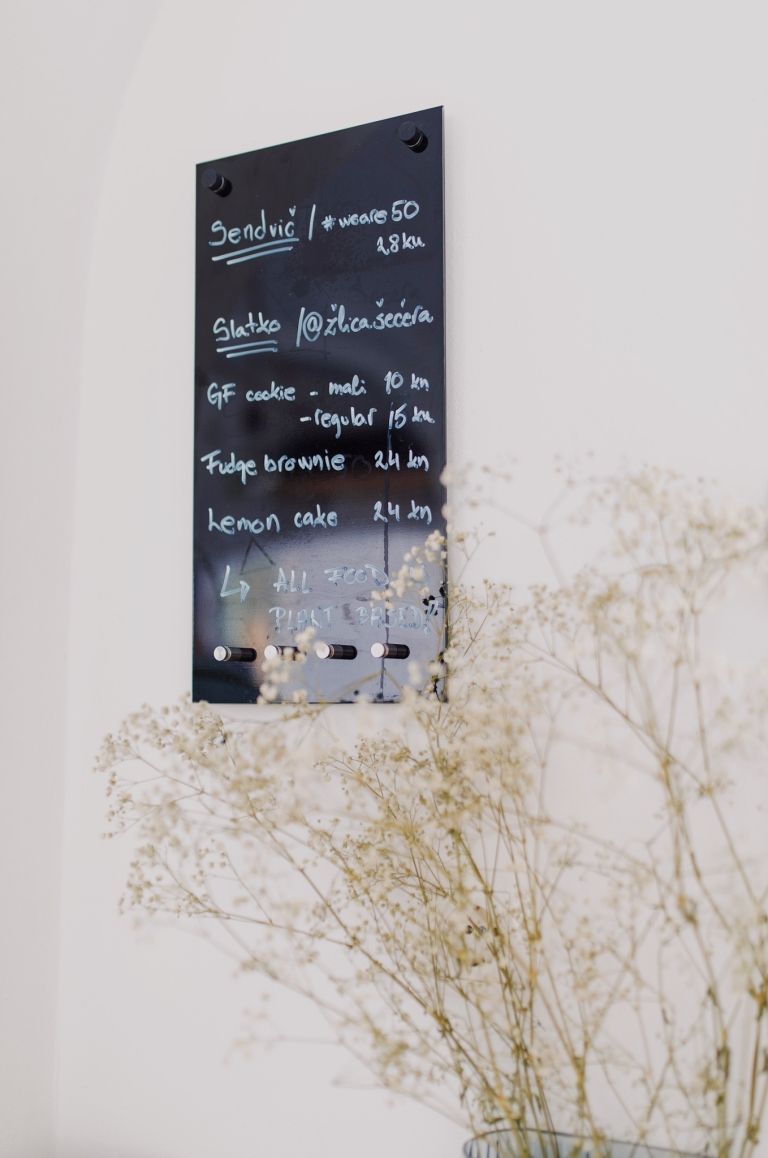 Sendvič / #weare50
28 kn
Slatko /@žlica.šećera
GF cookie - mali 10 kn
- regular 15 kn
Fudge brownie 24 kn
Lemon cake 24 kn
↳ ALL FOOD
PLANT BASED!